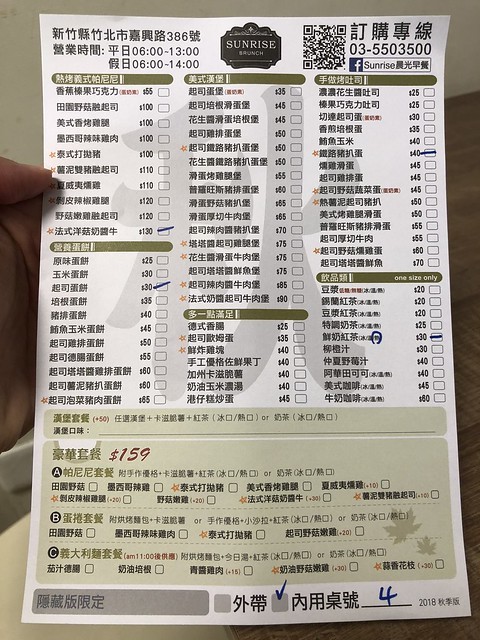 新竹縣竹北市嘉興路386號
營業時間: 平日06:00-13:00
假日06:00-14:00
SUNRISE
BRUNCH
訂購專線
03-5503500
Sunrise晨光早餐
熱烤義式帕尼尼
香蕉榛果巧克力(蛋奶素) $55
田園野菇融起司 $100
美式香烤雞腿 $100
墨西哥辣味雞肉 $100
泰式打拋豬 $100
薯泥雙豬融起司 $110
夏威夷燻雞 $110
剝皮辣椒雞腿 $120
野菇嫩雞融起司 $120
法式洋菇奶醬牛 $130
營養蛋餅
原味蛋餅 $25
玉米蛋餅 $30
起司蛋餅 $30
培根蛋餅 $35
豬排蛋餅 $40
鮪魚玉米蛋餅 $45
起司雞排蛋餅 $50
起司德腸蛋餅 $55
塔塔醬起司雞腿蛋餅 $60
起司薯泥豬扒蛋餅 $60
起司泡菜豬肉蛋餅 $65
美式漢堡
起司蛋堡(蛋奶素) $35
起司培根滑蛋堡 $45
花生醬滑蛋培根堡 $45
起司雞排蛋堡 $50
起司鐵路豬扒蛋堡 $50
花生醬鐵路豬扒蛋堡 $50
滑蛋烤雞腿堡 $55
普羅旺斯豬排蛋堡 $60
滑蛋野菇豬扒堡 $65
滑蛋厚切牛肉堡 $65
起司辣肉醬豬扒堡 $65
塔塔醬起司雞腿堡 $70
花生醬滑蛋牛肉堡 $75
塔塔醬起司鱈魚堡 $75
起司辣肉醬牛肉堡 $85
法式奶醬起司牛肉堡 $90
多一點滿足
德式香腸 $25
起司歐姆蛋 $35
鮮炸雞塊 $40
手工優格佐鮮果丁 $40
加州卡滋脆薯 $40
奶油玉米濃湯 $40
港仔糕炒蛋 $45
手做烤吐司
濃濃花生醬吐司 $25
榛果巧克力吐司 $25
切達起司蛋(蛋奶素) $30
香煎培根蛋 $35
鮪魚玉米 $40
鐵路豬扒蛋 $40
燻雞滑蛋 $45
起司雞排蛋 $45
起司野菇蔬菜蛋(蛋奶素) $45
熱薯泥起司豬扒 $50
美式烤雞腿滑蛋 $50
普羅旺斯豬排滑蛋 $55
起司厚切牛肉 $55
起司塔塔醬鱈魚 $70
飲品類 one size only
豆漿低糖/無糖(冰/溫/熱) $20
錫蘭紅茶(冰/溫/熱) $20
豆漿紅茶(冰/溫/熱) $25
特調奶茶(冰/溫/熱) $25
鮮奶紅茶(冰/溫/熱) $30
柳橙汁 $30
仲夏野莓汁 $40
阿華田可可(冰/溫/熱) $40
美式咖啡(冰/溫/熱) $45
牛奶咖啡(冰/溫/熱) $60
漢堡套餐 (+50) 任選漢堡+卡滋脆薯+紅茶(冰口/熱口) or 奶茶(冰口/熱口)
漢堡口味:
豪華套餐 $159
A帕尼尼套餐 附手作優格+卡滋脆薯+紅茶(冰口/熱口) or 奶茶(冰口/熱口)
田園野菇 墨西哥辣味雞 泰式打拋豬 美式香烤雞腿 夏威夷燻雞(+10)
剝皮辣椒雞腿(+20) 野菇嫩雞(+20) 法式洋菇奶醬牛(+30) 薯泥雙豬融起司(+10)
B蛋捲套餐 附烘烤麵包+卡滋脆薯 or 手作優格+小沙拉+紅茶(冰口/熱口) or 奶茶(冰口/熱口)
田園野菇 墨西哥辣味雞 泰式打拋豬 起司野菇嫩雞(+20)
C義大利麵套餐(am11:00後供應) 附烘烤麵包+今日湯+紅茶(冰口/熱口) or 奶茶(冰口/熱口)
茄汁德腸 奶油培根 青醬雞肉(+15) 奶油野菇嫩雞(+30) 蒜香花枝(+30)
隱藏版限定 外帶 內用桌號 4 2018 秋季版